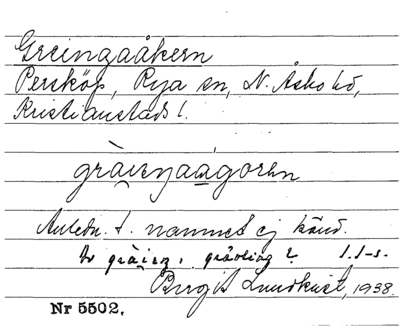 Greingaåkern
Persköp, Rya sn, N. Åsbo hd,
Kristianstads l.
gràiengaágoren
Anledn. t. namnet ej känd.
Av gràieng,
Birgit Lundkvist, 1938.
Nr 5502.